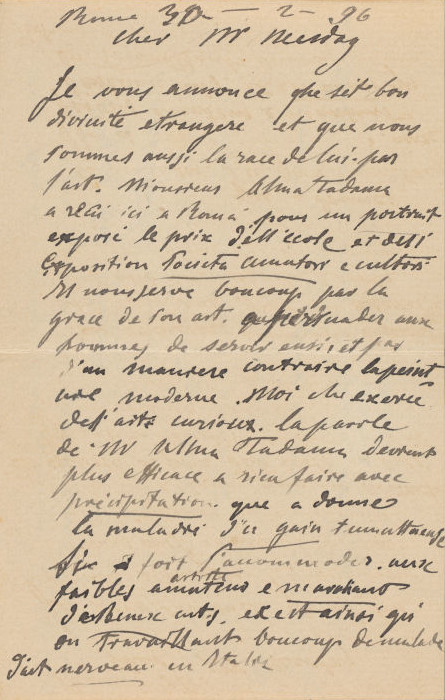 Rome 30 - 2 - 96
cher Mr Mesdag
Je vous annonce che sit bon
divinité etrangere et que nous
sommes aussi la race de lui par
l'art. Monsieur Alma Tadama
a reçu ici a Roma pour un portrait
exposé le prix dell école et dell
Exposition Società amatori e cultori
et nous serve beaucoup par la
grace de son art. persuader aux
hommes de servir ansi, et par
d'un maniere contraire la peint
ure moderne. Moi che exerce
dell'arts curieux. la parole
de Mr Alma Tadama devrent
plus efficace a rien faire avec
précipitation. que a donne
la maladie d'un gain tumultueuse
fort s'accommoder. aux
faibles amateur e marchand
artiste
d'asheneux arts, ex est ainsi qui
on travaillant beaucoup de malade
d'art nerveau. en Italie